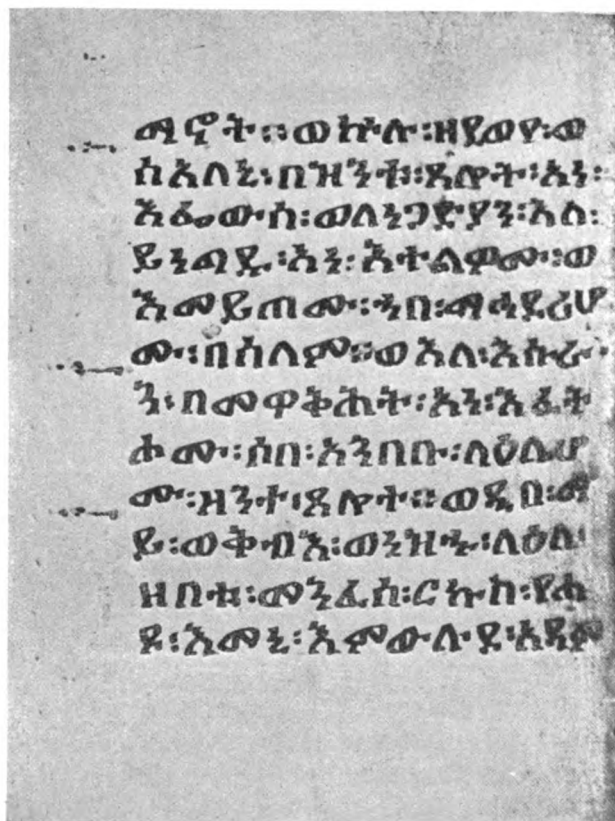 ማኖት። ወኵሉ፡ ዘየወየ፡ ወ
ሰአለኒ፡ በዝንቱ፡ ጸሎት፡ አነ፡
እፌውስ፡ ወለነጋድያን፡ እለ፡
ይነግዱ፡ አነ፡ እተልዎሙ፡ ወ
እመይጠሙ፡ ኀበ፡ ማኅደሪሆ
ሙ፡ በሰላም። ወእለ፡ እኩራ
ን፡ በመዋቅሕት፡ አነ፡ እፈት
ሖሙ፡ ሶበ፡ አንበቡ፡ ላዕሌሆ
ሙ፡ ዘንተ፡ ጸሎት። ወዲበ፡ ማ
ይ፡ ወቅብእ፡ ወነዝኁ፡ ላዕለ፡
ዘቦቱ፡ መንፈስ፡ ርኩስ፡ የሐ
ይ፡ እመኒ፡ እምውሉደ፡ አዳም